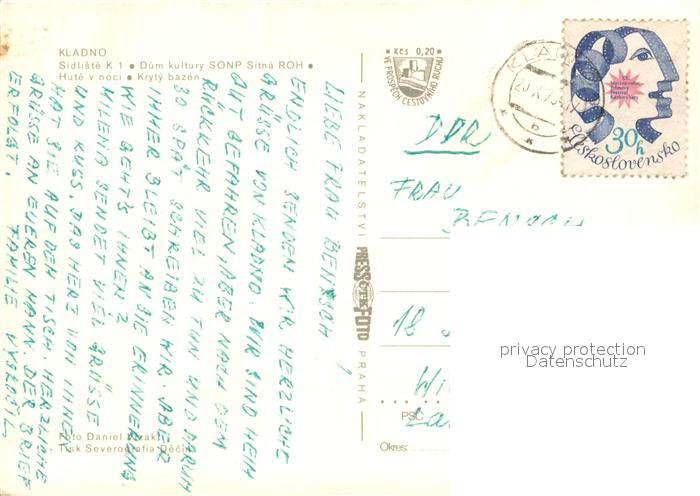 KLADNO
Sídliště K 1 • Dům kultury SONP Sítná ROH •
Hutě v noci • Krytý bazén
Kčs 0,20
VE PROSPĚCH CESTOVNÍHO RUCHU
KLADNO
30h
Československo
LIEBE FRAU BENISCH
ENDLICH SENDEN WIR HERZLICHE
GRÜSSE VON KLADNO. WIR SIND HEIM
GUT GEFAHREN, ABER NACH DEM
RÜCKKEHR VIEL ZU TUN UND DARUM
SO SPÄT SCHREIBEN WIR. ABER
IMMER BLEIBT AN SIE ERINNERUNG.
WIE GEHT'S IHNEN?
MILENA SENDET VIEL GRÜSSE
UND KUSS. DAS HERZ VON IHNEN
HAT SIE AUF DEN TISCH. HERZLICHE
GRÜSSE AN EUEREN MANN. DER BRIEF
ERFOLGT. FAMILIE
NAKLADATELSTVÍ PRESSFOTO PRAHA
DDR
FRAU
18
PSČ
Okres:
privacy protection
Datenschutz
Foto Daniel
Tisk Severografia Děčín